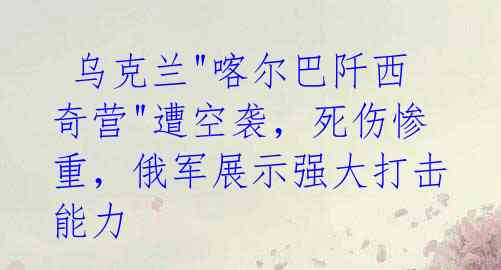 乌克兰"喀尔巴阡西
奇营"遭空袭，死伤惨
重，俄军展示强大打击
能力